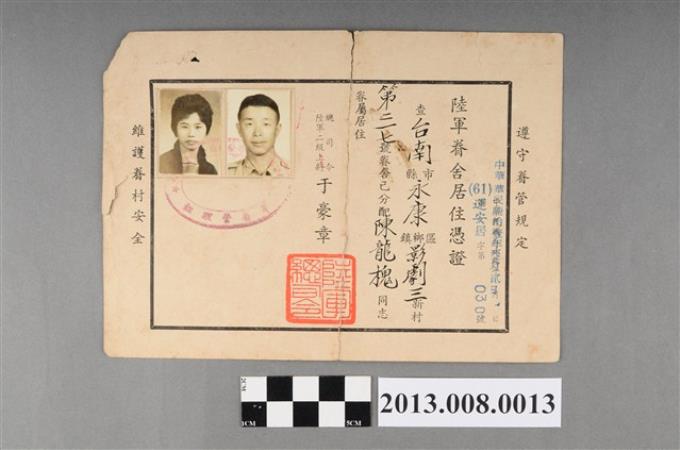 遵守眷管規定
陸軍眷舍居住憑證
(61)運安居字第030號
查台南市縣永康區鄉鎮影劇三新村
第二七號眷舍已分配陳龍槐同志
眷屬居住
總司令
陸軍二級上將于豪章
陸軍總司令
維護眷村安全
2CM
1CM
5CM
2013.008.0013